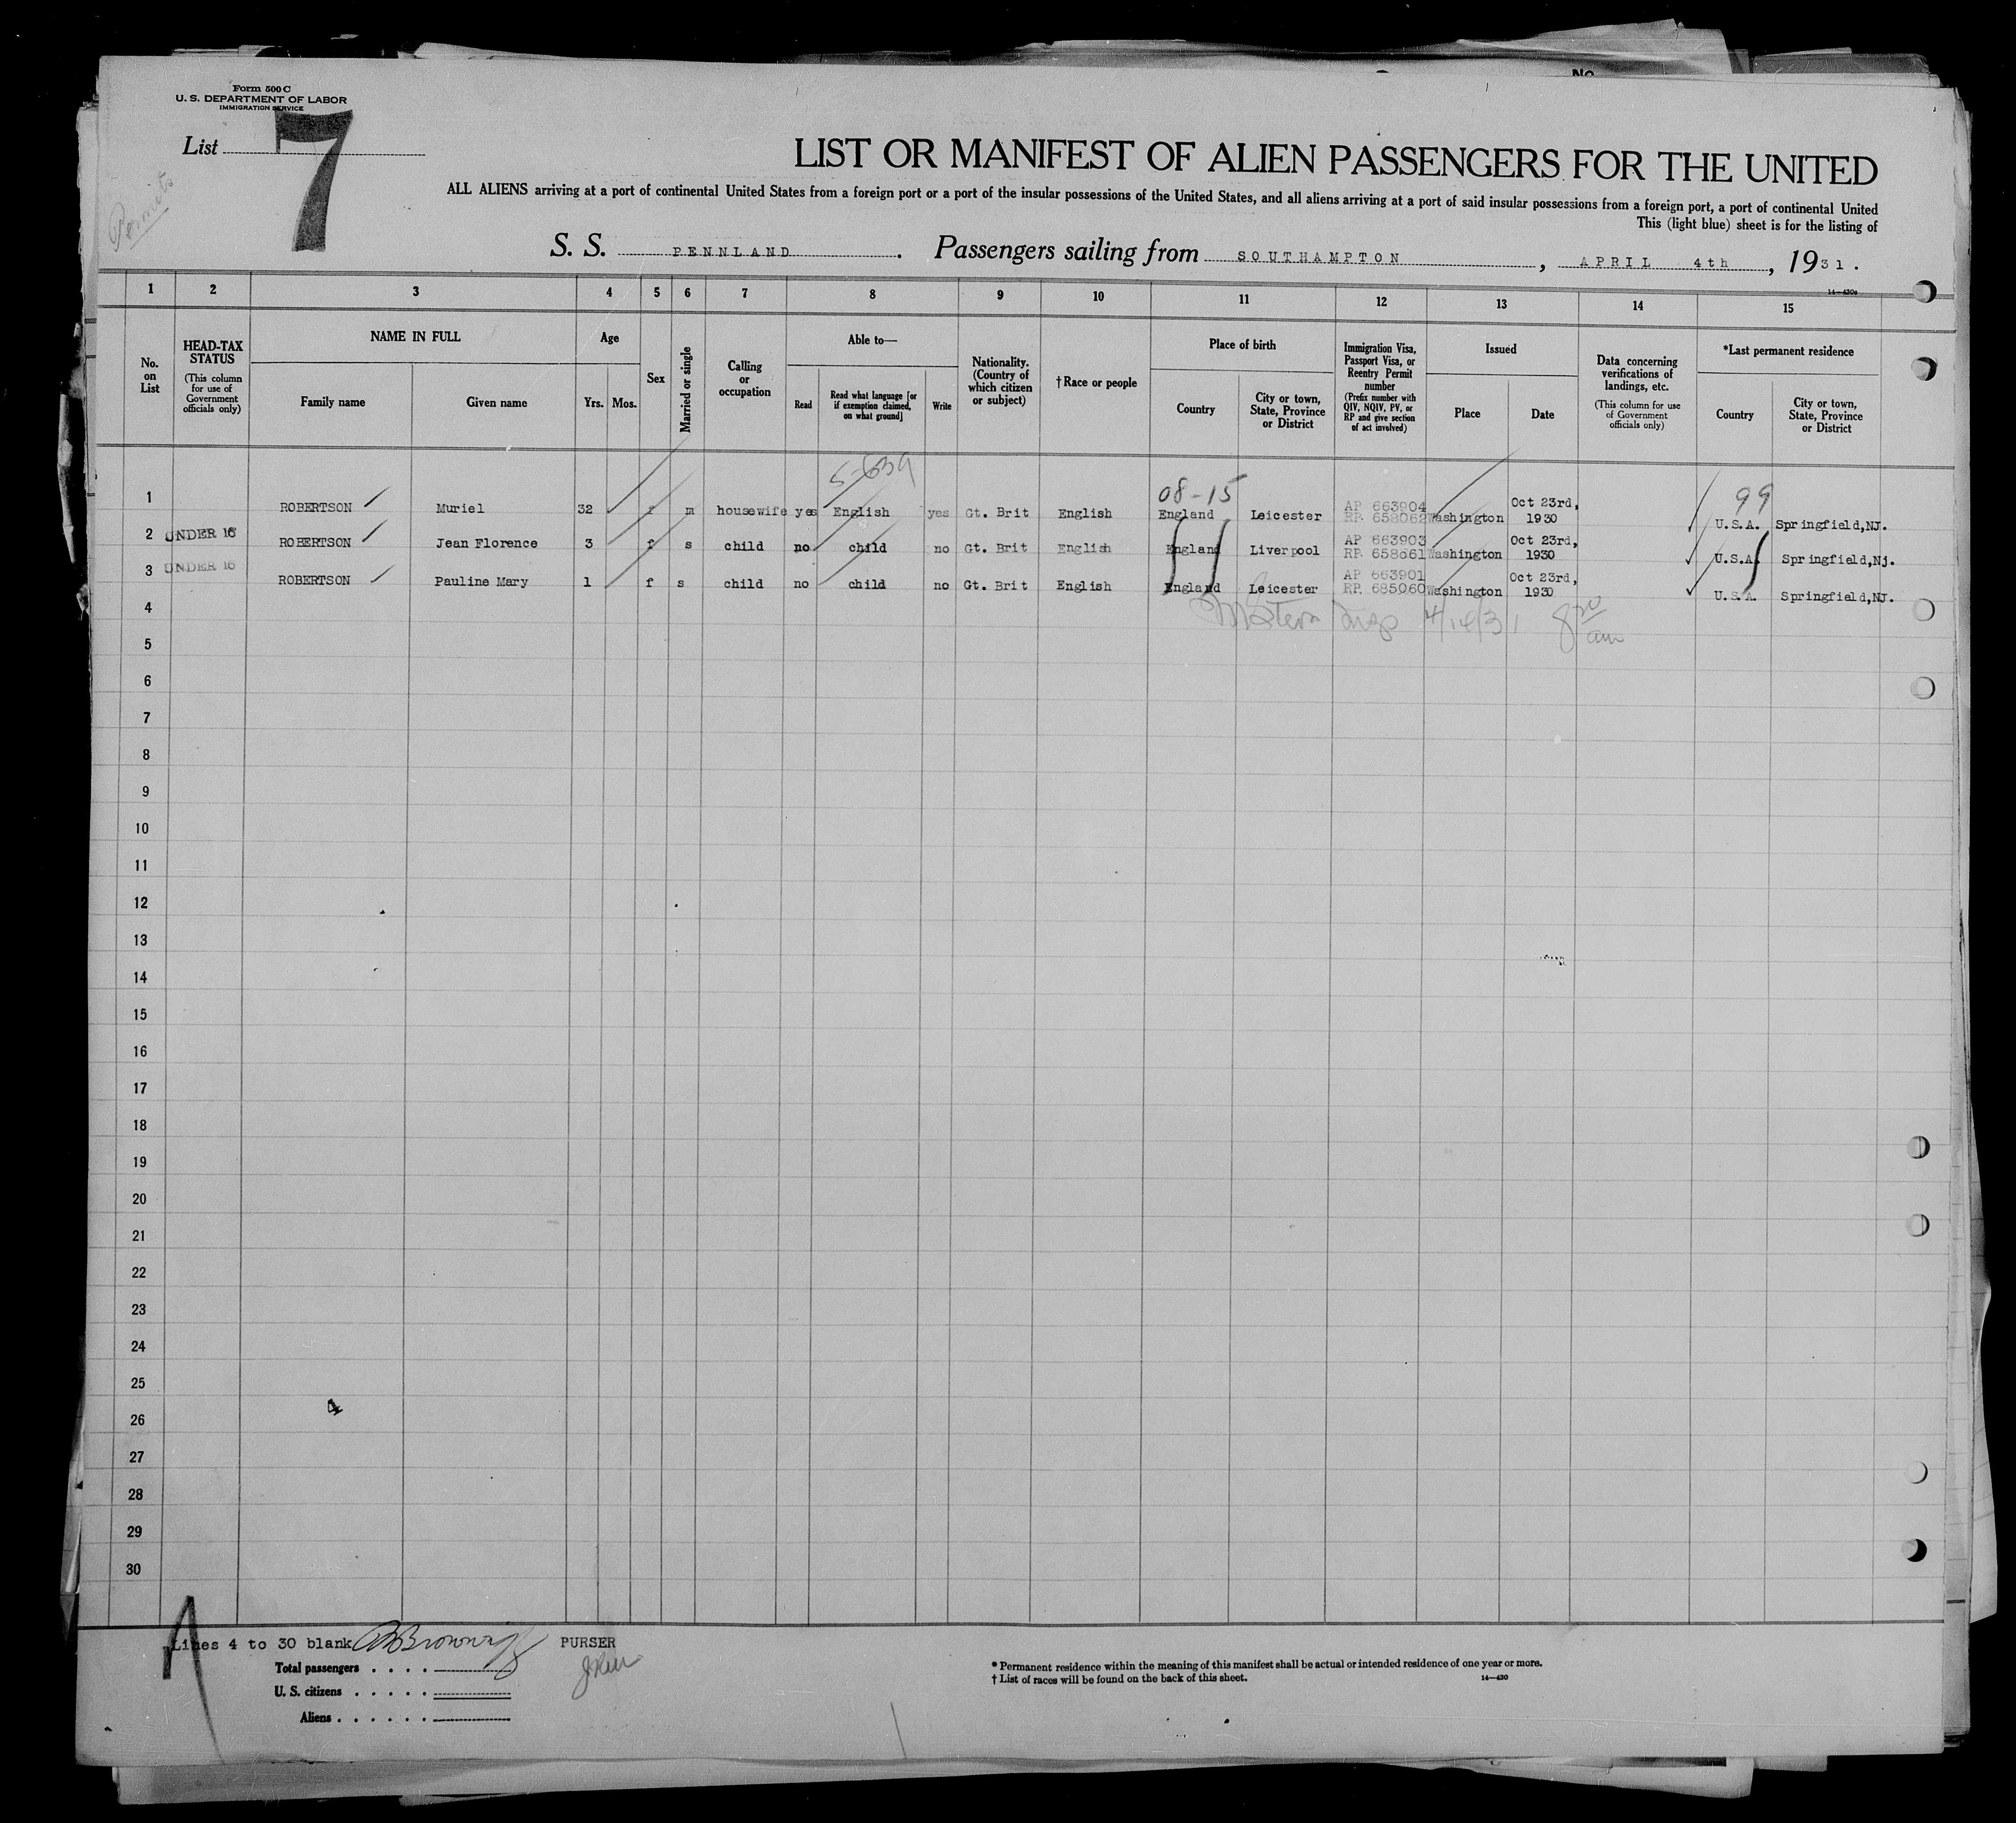 No
Form 500 C
U. S. DEPARTMENT OF LABOR
IMMIGRATION SERVICE
List 7
Permits
LIST OR MANIFEST OF ALIEN PASSENGERS FOR THE UNITED
ALL ALIENS arriving at a port of continental United States from a foreign port or a port of the insular possessions of the United States, and all aliens arriving at a port of said insular possessions from a foreign port, a port of continental United
This (light blue) sheet is for the listing of
S. S. PENNLAND. Passengers sailing from SOUTHAMPTON, APRIL 4th, 1931.
14—430a
1 2 3 4 5 6 7 8 9 10 11 12 13 14 15
No. on List
HEAD-TAX STATUS
(This column for use of Government officials only)
NAME IN FULL
Family name Given name
Age
Yrs. Mos.
Sex
Married or single
Calling or occupation
Able to—
Read
Read what language [or if exemption claimed, on what ground]
Write
Nationality. (Country of which citizen or subject)
†Race or people
Place of birth
Country
City or town, State, Province or District
Immigration Visa, Passport Visa, or Reentry Permit number
(Prefix number with QIV, NQIV, PV, or RP and give section of act involved)
Issued
Place Date
Data concerning verifications of landings, etc.
(This column for use of Government officials only)
*Last permanent residence
Country
City or town, State, Province or District
5-639
08-15
99
1 ROBERTSON Muriel 32 f m housewife yes English yes Gt. Brit English England Leicester AP 663904 RP. 658062 Washington Oct 23rd, 1930 U.S.A. Springfield,NJ.
2 UNDER 16 ROBERTSON Jean Florence 3 f s child no child no Gt. Brit English England Liverpool AP 663903 RP. 658061 Washington Oct 23rd, 1930 U.S.A. Springfield,Nj.
3 UNDER 16 ROBERTSON Pauline Mary 1 f s child no child no Gt. Brit English England Leicester AP 663901 RP. 685060 Washington Oct 23rd, 1930 U.S.A. Springfield,NJ.
4/14/31 8 30 am
4
5
6
7
8
9
10
11
12
13
14
15
16
17
18
19
20
21
22
23
24
25
26
4
27
28
29
30
Lines 4 to 30 blank PURSER
Total passengers . . . .
U. S. citizens . . . . .
Aliens . . . . . .
* Permanent residence within the meaning of this manifest shall be actual or intended residence of one year or more.
† List of races will be found on the back of this sheet.
14—430